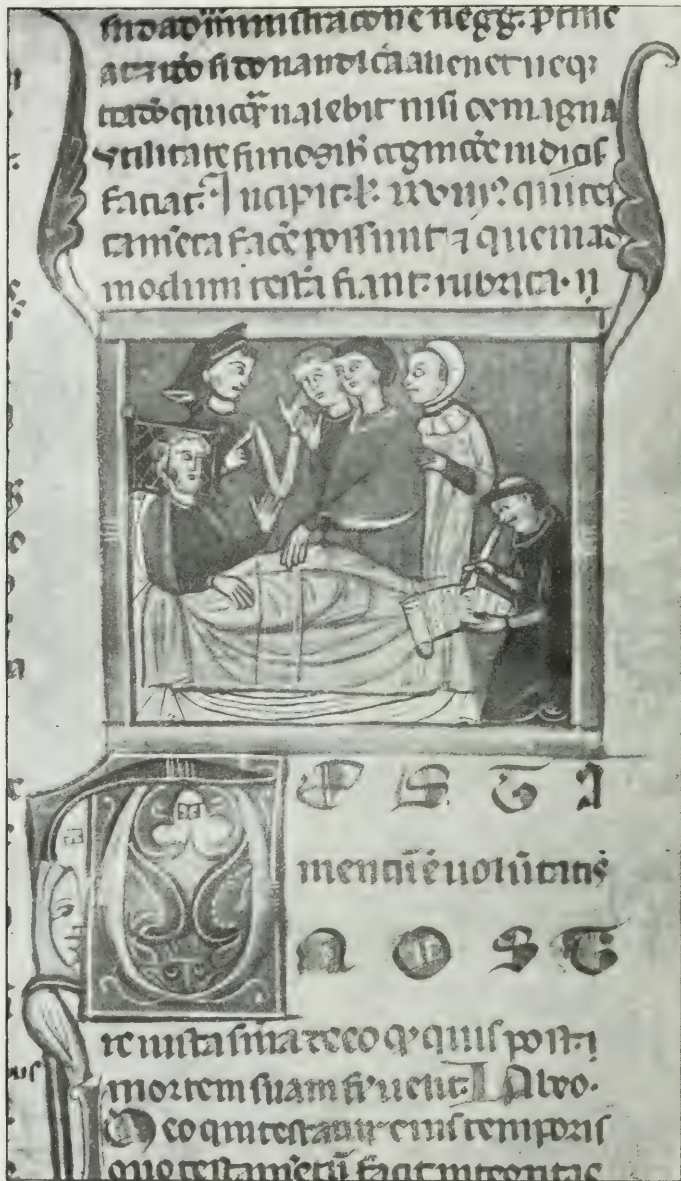 negg. ptine
si donandi cā alienet neq;
quicq̄ ualebit nisi ex magna
utilitate furiosi
faciat. Incipit. l. xxviii. qui tes
tam̄eta facē possunt ⁊ quemad
modum testā fiant. rubrica. ii
T E S T A
mentū ē uolūtatis
N O S T
re iusta sn̄ia de eo qͥ quis post
mortem suam fi'i uelit. Labeo.
In eo qui testatur eius temporis
quo testam̄etū facit integritas